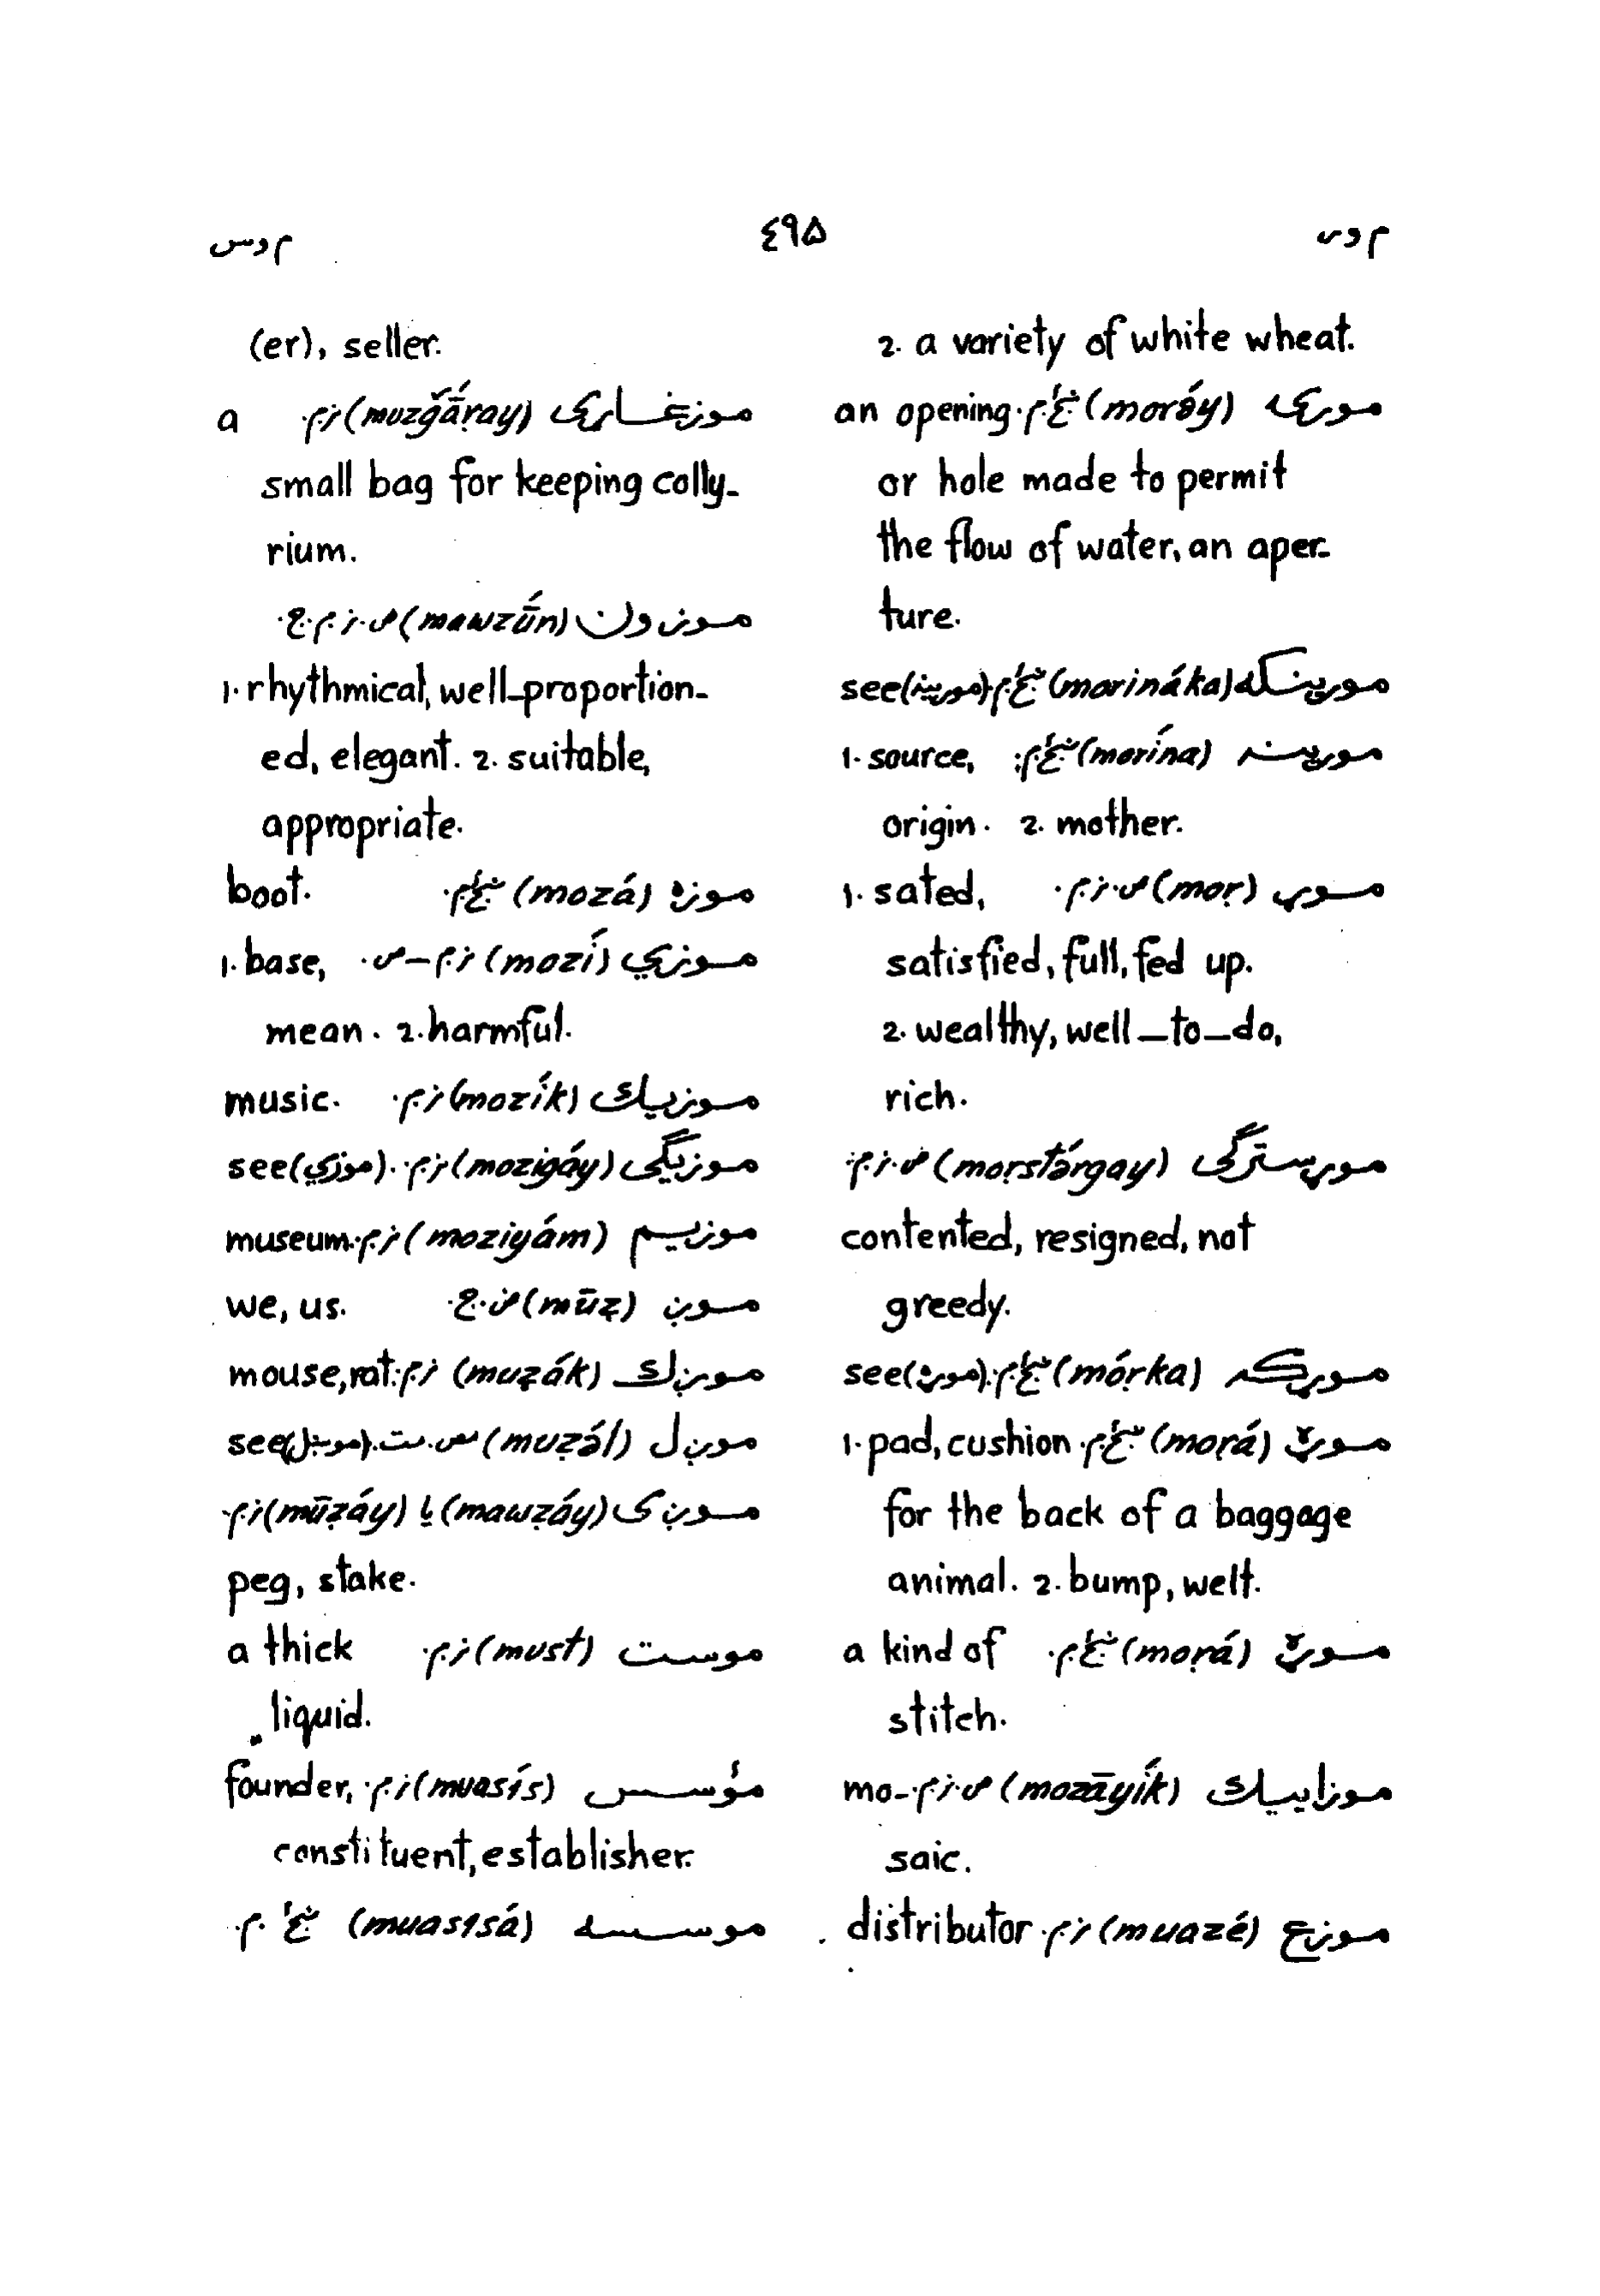 م ور
٤٩۵
م وس
2. a variety of white wheat.
مورۍ (morә́y) ښځ.م. an opening
or hole made to permit
the flow of water, an aper-
ture.
مورينكه (morináka) ښځ.م. (مورينه) see
مورينه (morína) ښځ.م. 1. source,
origin. 2. mother.
موړ (moṛ) ص.نر.م. 1. sated,
satisfied, full, fed up.
2. wealthy, well-to-do,
rich.
موړسترګى (moṛstә́rgay) ص.نر.م.
contented, resigned, not
greedy.
موړكه (móṛka) ښځ.م. (موړه) see
موړه (moṛá) ښځ.م. 1. pad, cushion
for the back of a baggage
animal. 2. bump, welt.
موړه (moṛá) ښځ.م. a kind of
stitch.
موزاييك (mozāyík) ص.نر.م. mo-
saic.
موزع (muazé) نر.م. distributor
(er), seller.
موزغاړى (muzğā́ṛay) نر.م. a
small bag for keeping colly-
rium.
موزون (mawzū́n) ص.نر.م.ج.
1. rhythmical, well-proportion-
ed, elegant. 2. suitable,
appropriate.
موزه (mozá) ښځ.م. boot.
موزي (mozí) نر.م-ص. 1. base,
mean. 2. harmful.
موزيك (mozík) نر.م. music.
موزيګى (mozigáy) نر.م. (موزي) see
موزيم (moziyám) نر.م. museum.
موږ (mūẓ) ض.ج. we, us.
موږك (muẓák) نر.م. mouse, rat.
موږل (muẓә́l) see
موږى (mawẓáy) يا (mūẓáy) نر.م.
peg, stake.
موست (must) نر.م. a thick
liquid.
مؤسس (muasís) نر.م. founder,
constituent, establisher.
موسسه (muasisá) ښځ.م.